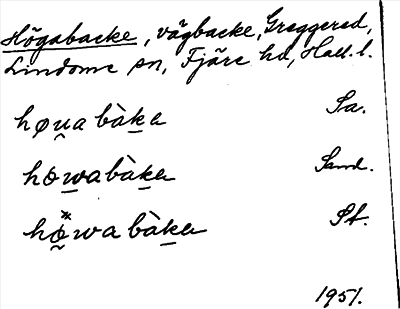 Högabacke, vägbacke, Greggered,
Lindome sn, Fjäre hd, Hall. l.
høu̯a bàka Sa.
höwa bàka Sand.
hö̯wa bàka St.
1951.